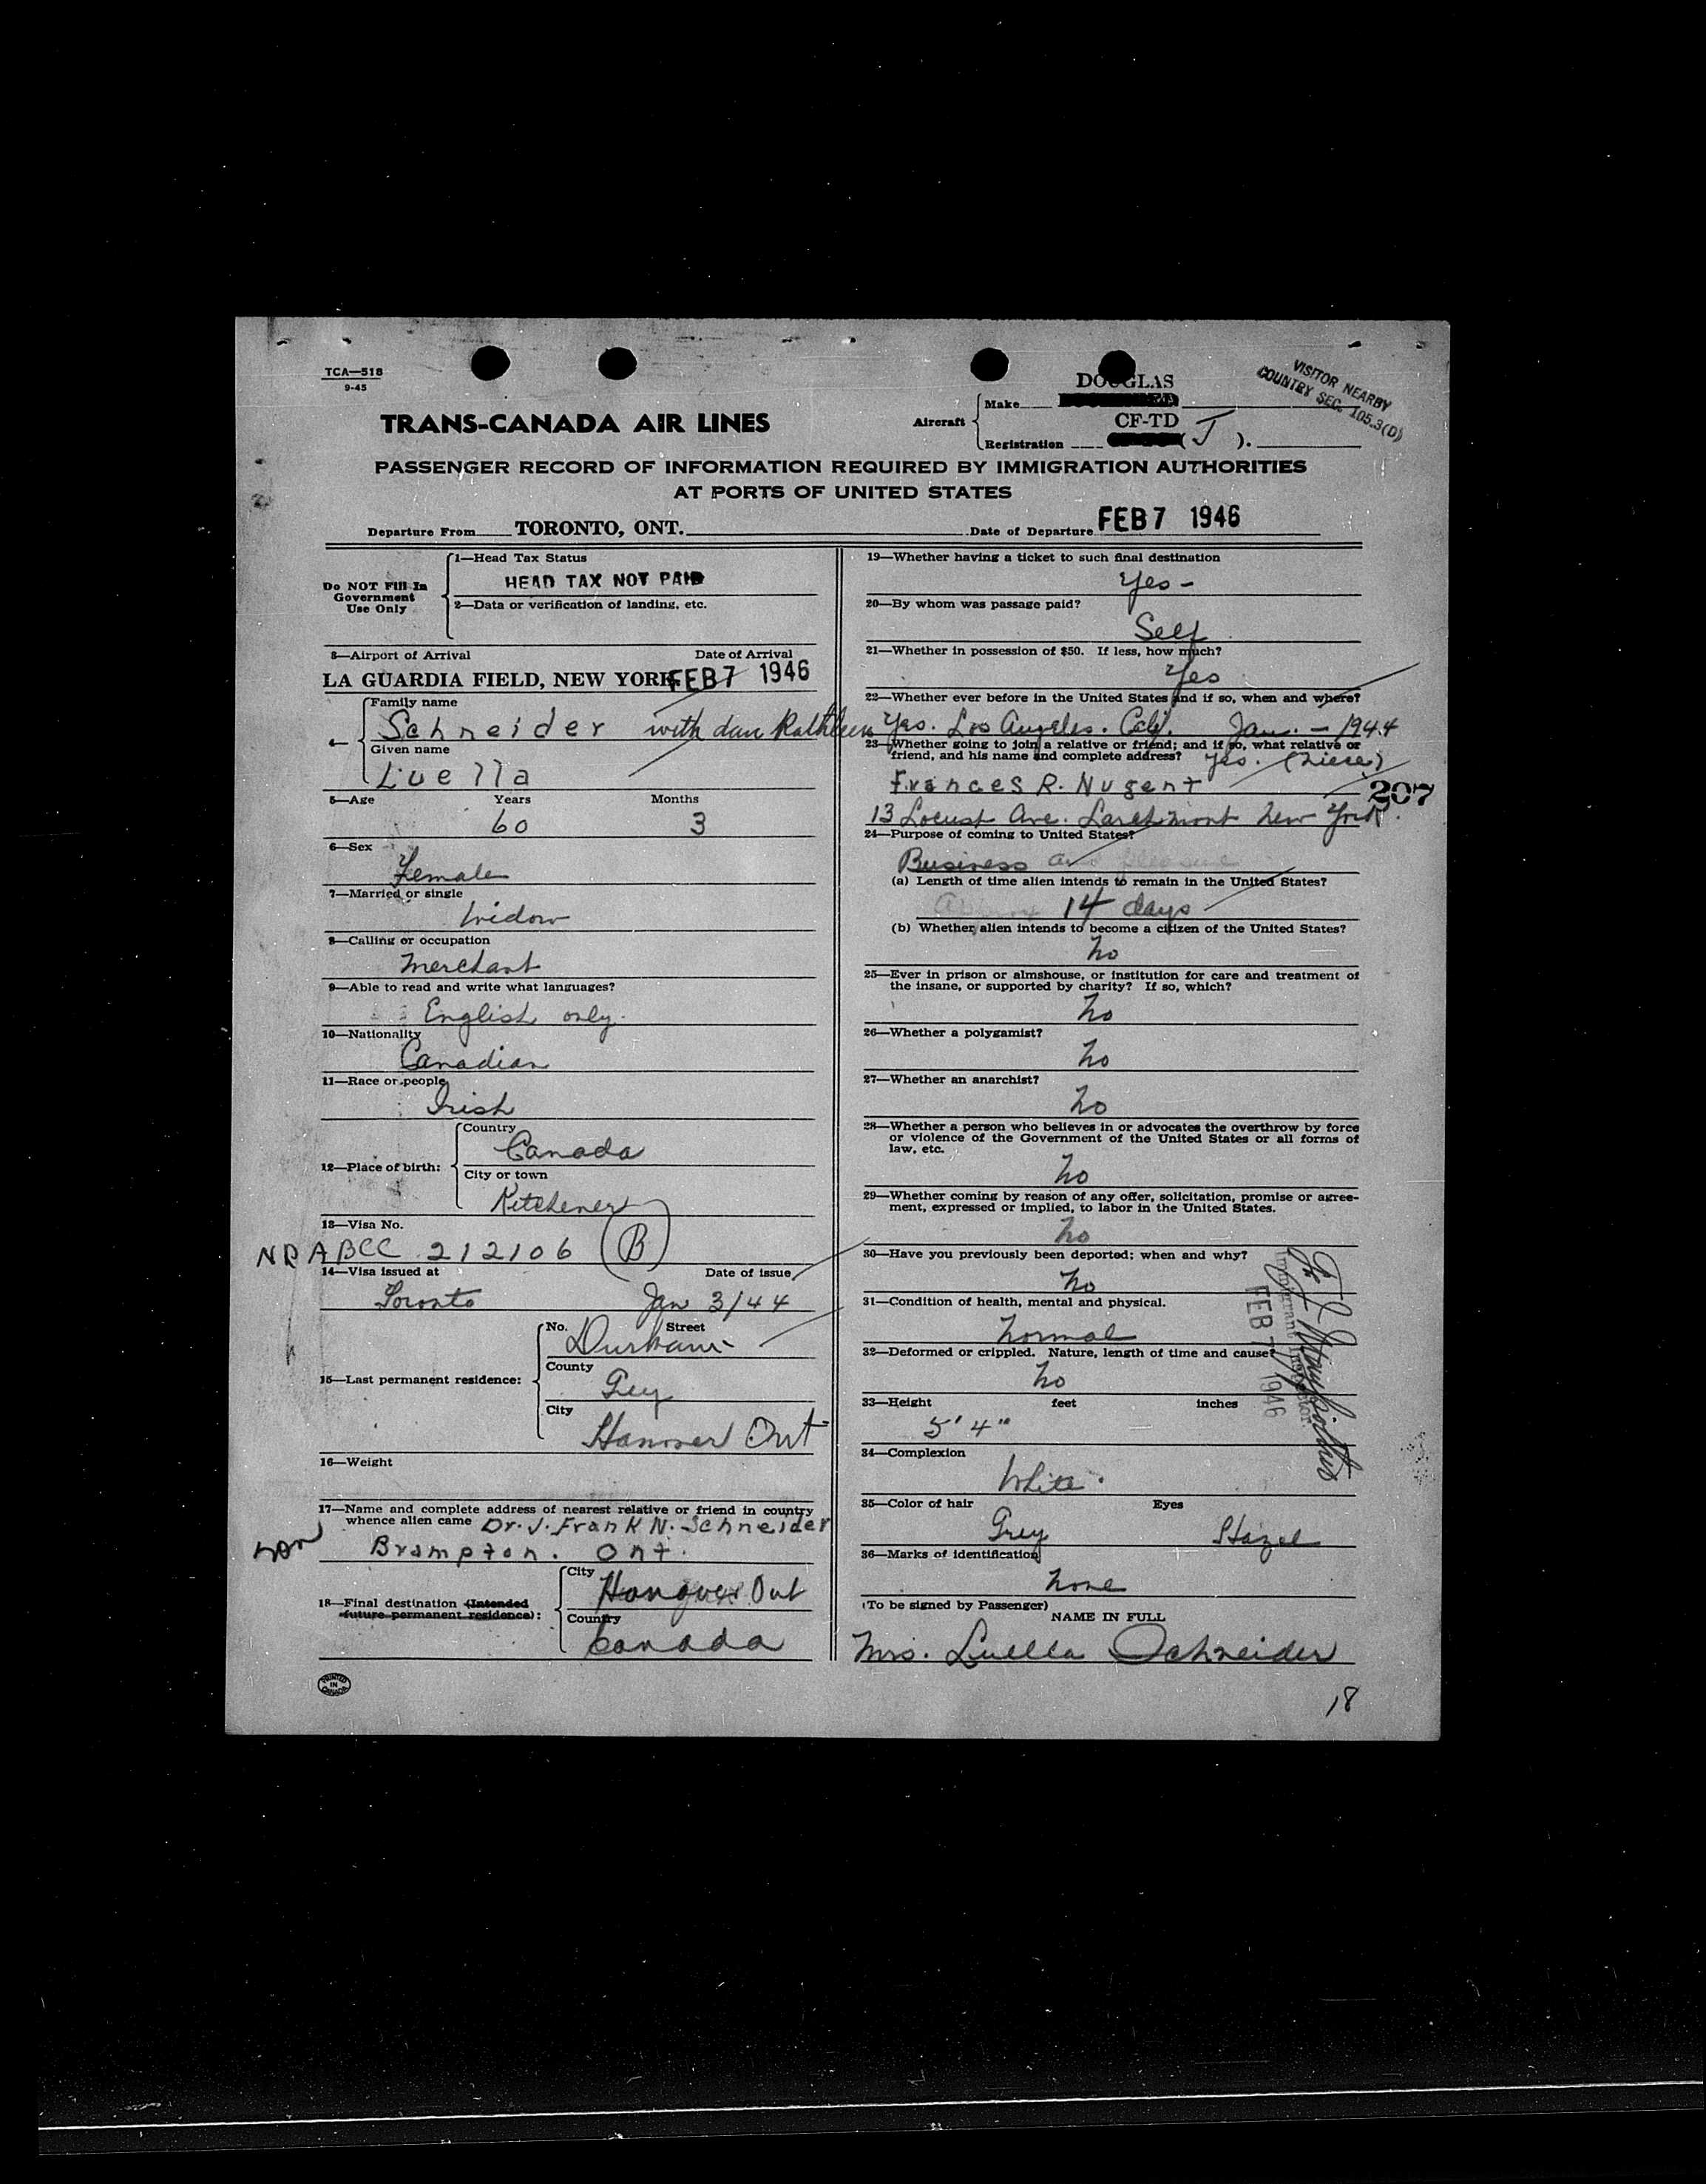 TCA—518
9-45
VISITOR NEARBY
COUNTRY SEC. 105.3(D)
TRANS-CANADA AIR LINES
Aircraft
Make
DOUGLAS
Registration
CF-TD
( J ).
PASSENGER RECORD OF INFORMATION REQUIRED BY IMMIGRATION AUTHORITIES
AT PORTS OF UNITED STATES
Departure From TORONTO, ONT. Date of Departure FEB 7 1946
Do NOT Fill In
Government
Use Only
1—Head Tax Status
HEAD TAX NOT PAID
2—Data or verification of landing, etc.
3—Airport of Arrival Date of Arrival
LA GUARDIA FIELD, NEW YORK FEB 7 1946
4—
Family name
Schneider with dau Kathleen
Given name
Luella
5—Age Years Months
60 3
6—Sex
Female
7—Married or single
Widow
8—Calling or occupation
Merchant
9—Able to read and write what languages?
English only.
10—Nationality
Canadian
11—Race or people
Irish
12—Place of birth:
Country
Canada
City or town
Kitchener
13—Visa No.
NRABCC 212106 (B)
14—Visa issued at Date of issue
Toronto Jan 3/44
15—Last permanent residence:
No. Street
Durham
County
Grey
City
Hanover Ont
16—Weight
17—Name and complete address of nearest relative or friend in country
whence alien came Dr. J. Frank N. Schneider
son
Brampton. Ont.
18—Final destination (Intended
future permanent residence):
City
Hanover Ont
Country
Canada
PRINTED
IN
CANADA
19—Whether having a ticket to such final destination
Yes -
20—By whom was passage paid?
Self
21—Whether in possession of $50. If less, how much?
Yes
22—Whether ever before in the United States and if so, when and where?
Yes. Los Angeles. Calif. Jan. - 1944
23—Whether going to join a relative or friend; and if so, what relative or
friend, and his name and complete address? Yes. (Niece)
Frances R. Nugent
207
13 Locust Ave. Larchmont New York.
24—Purpose of coming to United States?
Business
(a) Length of time alien intends to remain in the United States?
14 days
(b) Whether alien intends to become a citizen of the United States?
No
25—Ever in prison or almshouse, or institution for care and treatment of
the insane, or supported by charity? If so, which?
No
26—Whether a polygamist?
No
27—Whether an anarchist?
No
28—Whether a person who believes in or advocates the overthrow by force
or violence of the Government of the United States or all forms of
law, etc.
No
29—Whether coming by reason of any offer, solicitation, promise or agree-
ment, expressed or implied, to labor in the United States.
No
30—Have you previously been deported; when and why?
No
31—Condition of health, mental and physical.
Normal
32—Deformed or crippled. Nature, length of time and cause?
No
33—Height feet inches
5' 4"
34—Complexion
White.
35—Color of hair Eyes
Grey Hazel
36—Marks of identification
None
FEB 7 1946
Immigrant Inspector
(To be signed by Passenger)
NAME IN FULL
Mrs. Luella Schneider
18